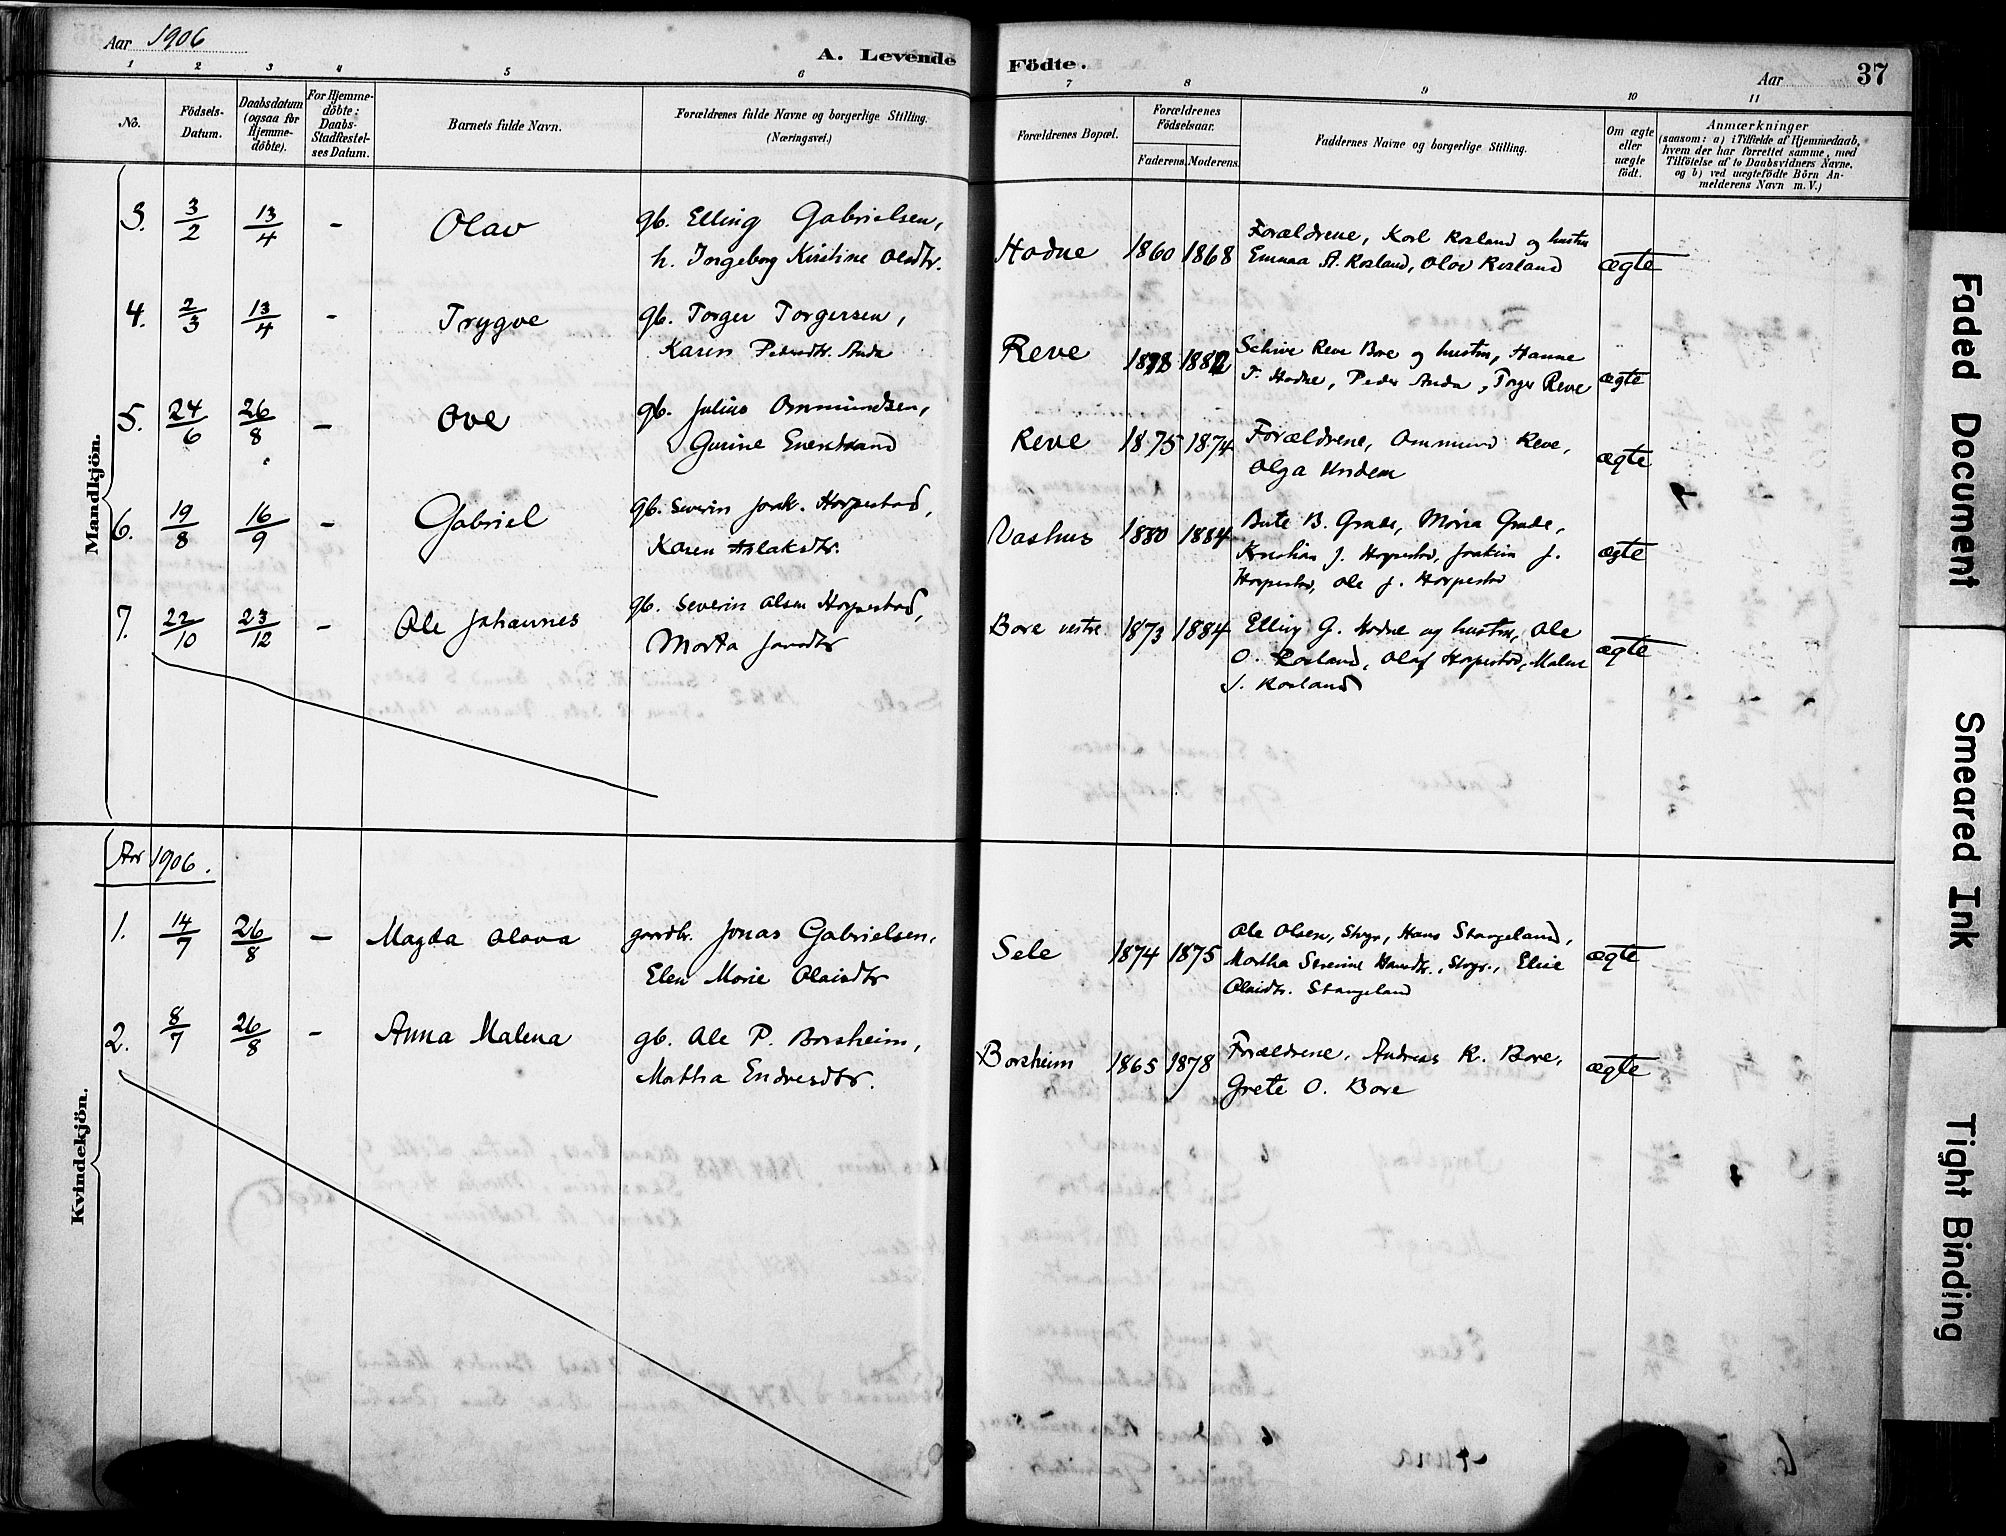 Aar 1906
A. Levende Födte.
Aar
37
1 2 3 4 5 6 7 8 9 10 11
No.
Födsels-Datum.
Daabsdatum (ogsaa for Hjemme-döbte).
For Hjemme-döbte: Daabs-Stadfæstel-ses Datum.
Barnets fulde Navn.
Forældrenes fulde Navne og borgerlige Stilling.
(Næringsvei.)
Forældrenes Bopæl.
Forældrenes Födselsaar.
Faderens. Moderens.
Faddernes Navne og borgerlige Stilling.
Om ægte eller uægte födt.
Anmærkninger
(saasom: a) i Tilfælde af Hjemmedaab,
hvem der har forrettet samme, med
Tilföielse af to Daabsvidners Navne,
og b) ved uægtefödte Börn An-
melderens Navn m. V.)
Mandkjön.
3. 3/2 13/4 - Olav gb. Elling Gabrielsen, Hodne 1860 1868 Forældrene, Karl Rosland og hustru ægte
h. Ingeborg Kristine Olsdtr. Emma A. Rosland, Olav Rosland
4. 2/3 13/4 - Trygve gb. Torger Torgersen, Reve 1878 1882 Schive Reve Bore og hustru, Hanne ægte
Karen Pedersdtr. Anda T. Hodne, Peder Anda, Torger Reve
5. 24/6 26/8 - Ove gb. Julius Ommundsen, Reve 1875 1874 Forældrene, Ommund Reve, ægte
Gurine Olga
6. 19/8 16/9 - Gabriel gb. Severin Joak. Horpestad, Vashus 1880 1884 Bute B. Grude, Maria Grude, ægte
Karen Aslaksdtr. Kristian J. Horpestad, Joakim J.
Horpestad, Ole J. Horpestad
7. 22/10 23/12 - Ole Johannes gb. Severin Olsen Horpestad, Bore vestre 1873 1884 Elling G. Hodne og hustru, Ole ægte
Marta O. Rosland, Olaf Horpestad, Malene
J. Rosland
Aar 1906.
Kvindekjön.
1. 14/7 26/8 - Magda Olava gaardbr. Jonas Gabrielsen, Sele 1874 1875 Ole Olsen, Stvgr, Hans Stangeland, ægte
Elen Marie Olaisdtr Martha Serine Hansdtr., Stvgr., Elise
Olaisdtr. Stangeland
2. 8/7 26/8 - Anna Malena gb. Ole P. Borsheim, Borsheim 1865 1878 Forældrene, Andreas K. Bore, ægte
Martha Endresdtr. Grete O. Bore
Faded Document
Smeared Ink
Tight Binding